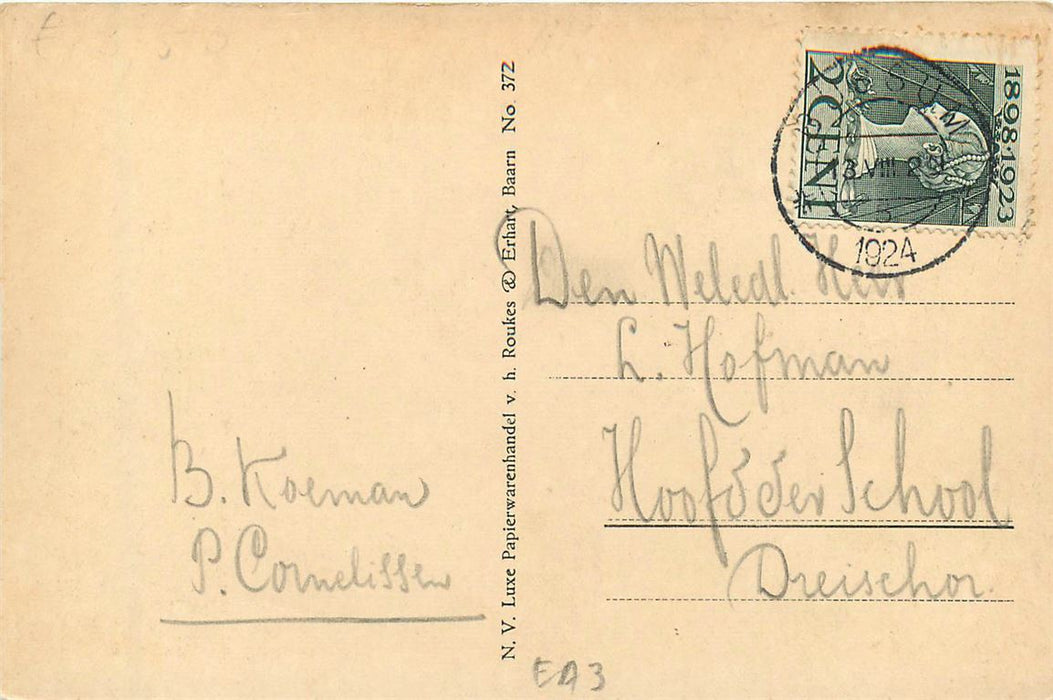 B. Koeman
P. Cornelissen
N. V. Luxe Papierwarenhandel v. h. Roukes & Erhart, Baarn No. 372
1898·1923
2 CENT
1924
Den Weledl. Heer
L. Hofman
Hoofd der School
Dreischor.
EA3